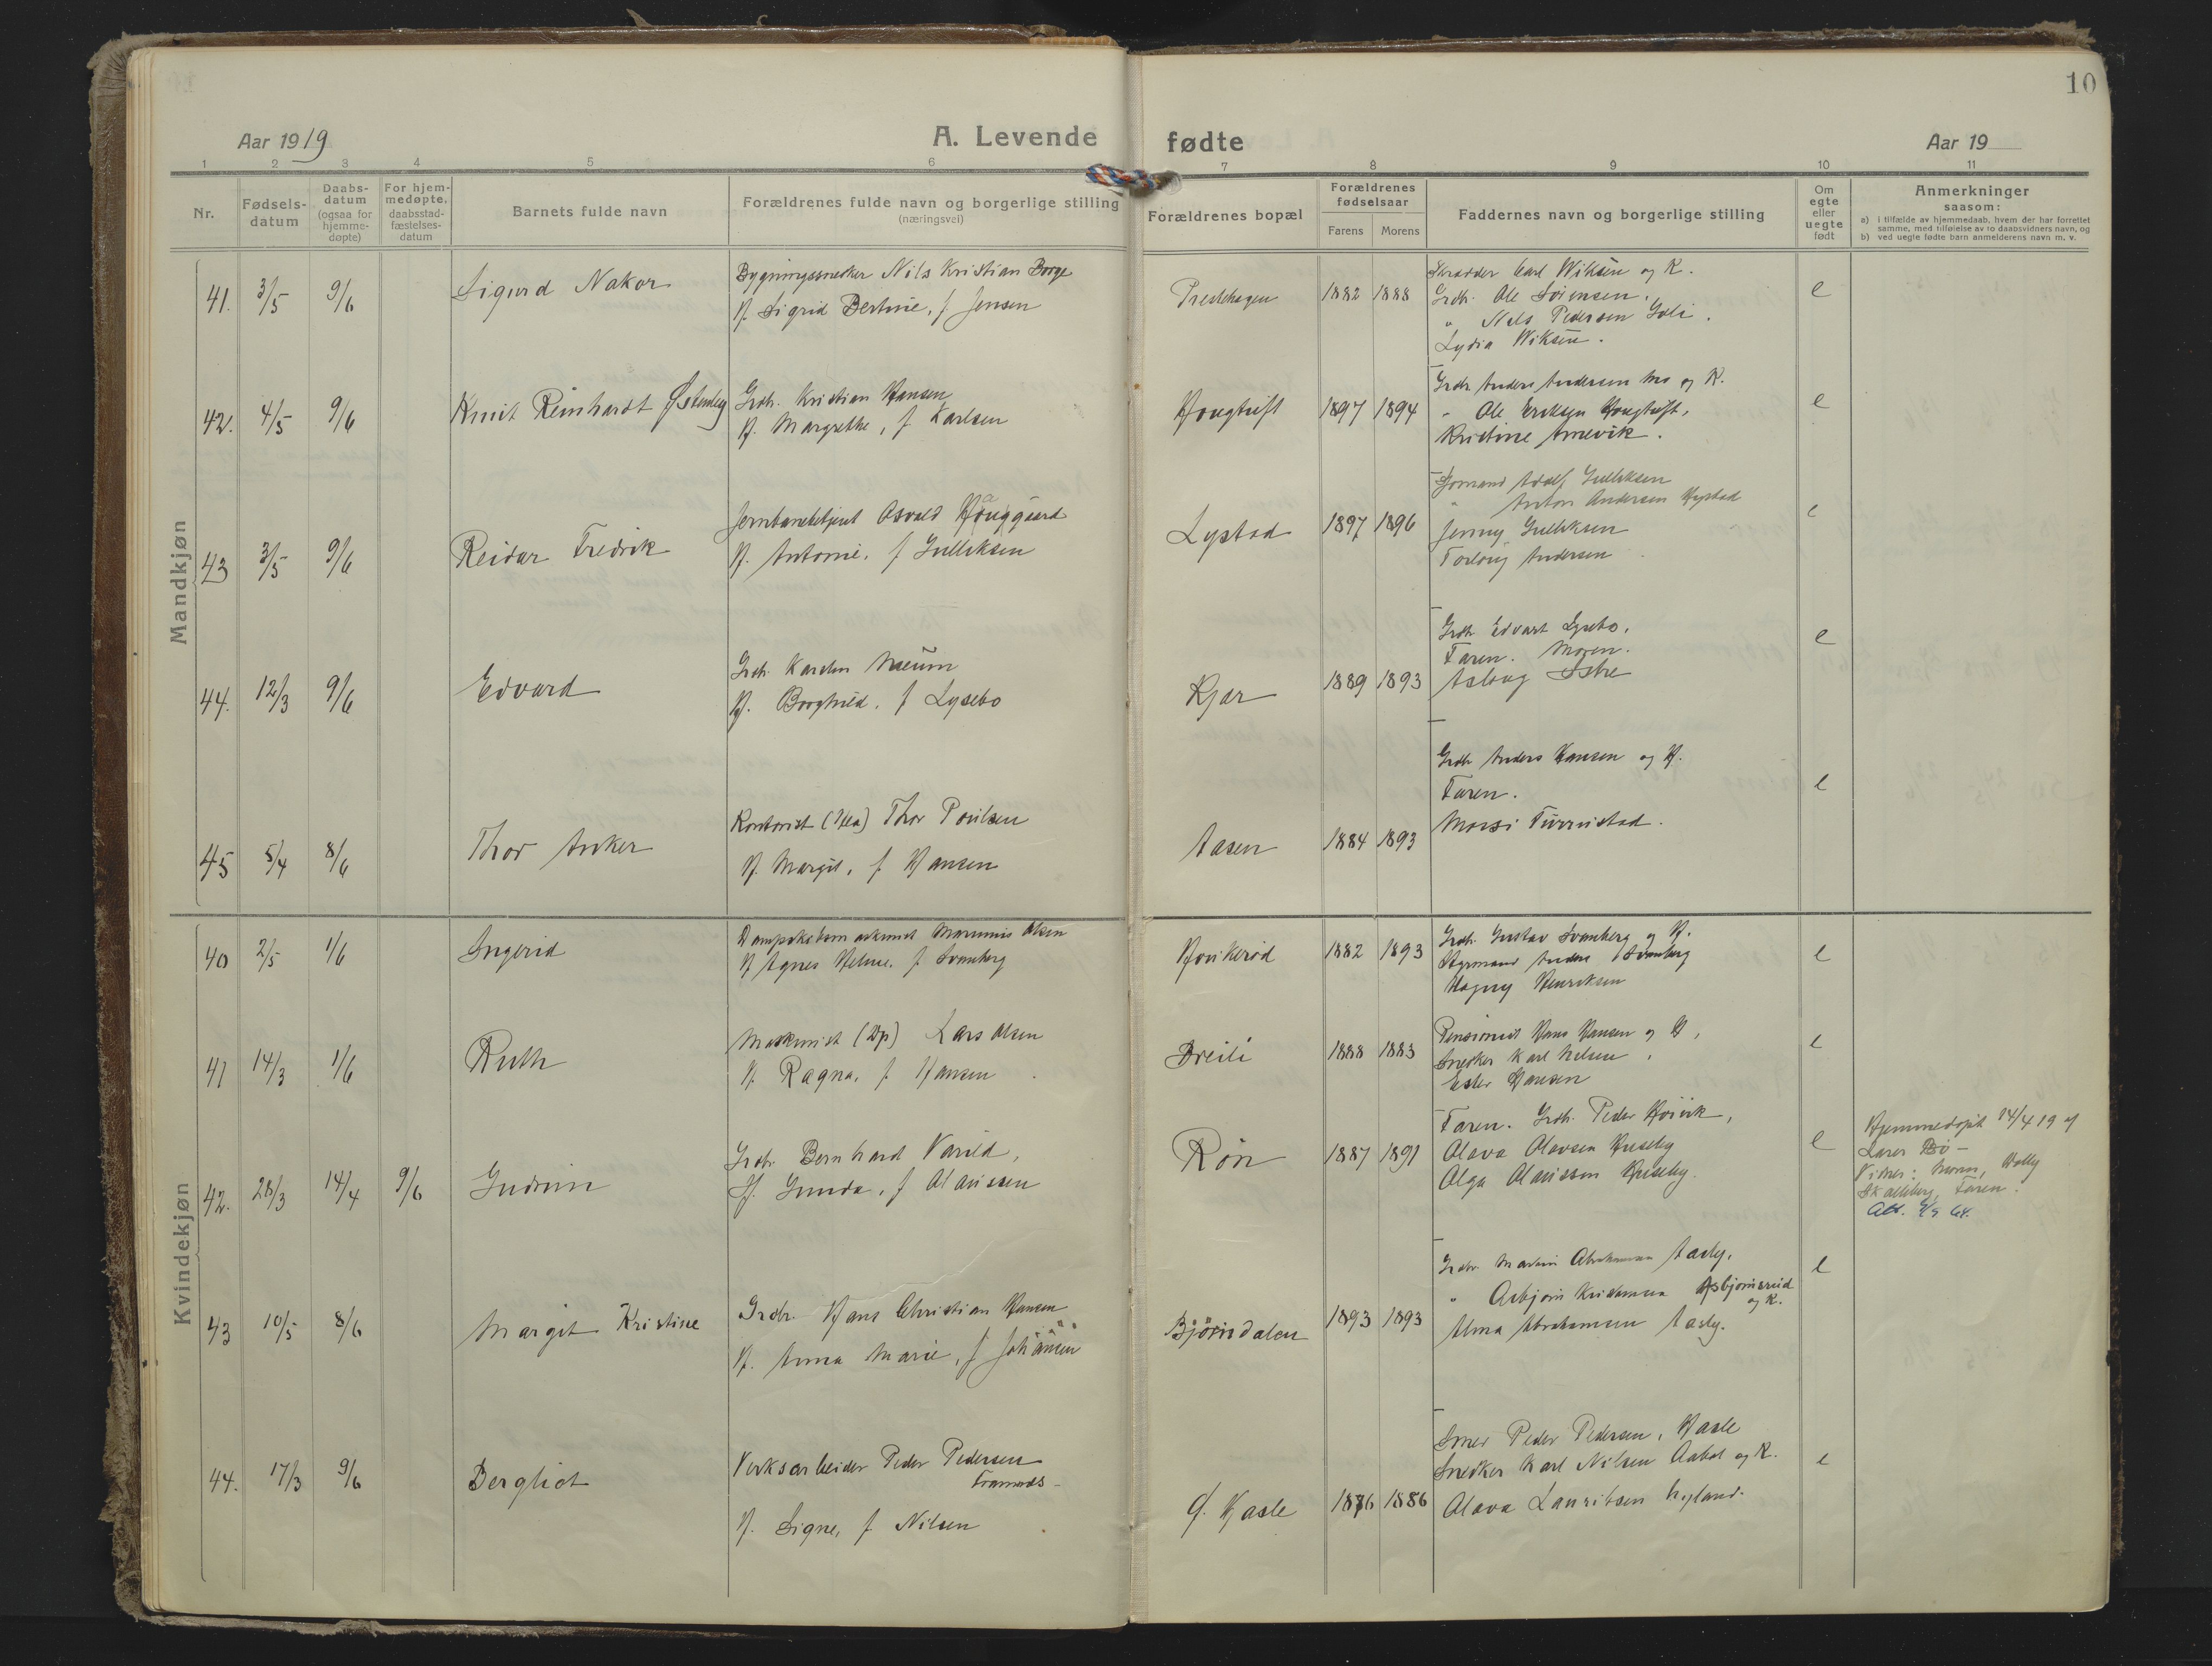 10
Aar 1919
A. Levende fødte
Aar 19
1 2 3 4 5 6 7 8 9 10 11
Nr.
Fødsels-
datum
Daabs-
datum
(ogsaa for
hjemme-
døpte)
For hjem-
medøpte,
daabsstad-
fæstelses-
datum
Barnets fulde navn
Forældrenes fulde navn og borgerlige stilling
(næringsvei)
Forældrenes bopæl
Forældrenes
fødselsaar
Farens Morens
Faddernes navn og borgerlige stilling
Om
egte
eller
uegte
født
Anmerkninger
saasom:
a) i tilfælde av hjemmedaab, hvem der har forrettet
samme, med tilføielse av to daabsvidners navn, og
b) ved uegte fødte barn anmelderens navn m. v.
Mandkjøn
41. 3/5 9/6 Sigurd Nakor
Bygningssnedker Nils Kristian Borge
H. Sigrid Bertine, f. Jensen
Prestehagen 1882 1888
Skrædder Carl Wiksen og K.
Grdr. Ole Sørensen.
" Nils Pedersen
Lydia Wiksen.
e
42. 4/5 9/6 Knut Reinhardt
Grdr. Kristian Hansen
H. Margrethe, f. Karlsen
Hougtuft 1897 1894
Grdr Anders Andersen og K.
" Ole Eriksen Hougtuft,
Kristine Arnevik.
e
43 3/5 9/6 Reidar Fredrik
Jernbanebetjent Osvald Haugaard
H. Antonie, f Gulliksen
Lystad 1897 1896
Sjømand Adolf Gulliksen
" Anton Andersen
Jenny Gulliksen
Andersen
e
44. 12/3 9/6 Edvard
Grdr. Karsten
H. Borghild, f Lysebo
Kjær 1889 1893
Grdr Edvart Lysebo.
Faren. Moren.
Aslaug
e
45 5/4 8/6 Thor Anker
Kontorist Thor Poulsen
H. Margit, f Hansen
Aasen 1884 1893
Grdr Anders Hansen og H.
Faren.
e
Kvindekjøn
40 2/5 1/6 Ingerid
Olsen
H Agnes Helene, f. Svanberg
1882 1893
Grdr. Gustav Svanberg og H.
Styrmand Anders Svanberg
Henriksen
e
41 14/3 1/6 Ruth
Maskinist (Dp) Lars Olsen
H. Ragna, f. Hansen
Breili 1888 1883
Pensionist Hans Hansen og H,
Snedker Karl Nilsen
Ester Hansen
e
42. 28/3 14/4 9/6 Gudrun
Grdr Bernhard Varild,
H. Gunda, f Olaussen
Røn 1887 1891
Faren. Grdr. Peder Høivik,
Olava Olavsen
Olga Olaussen
e
Hjemmedøpt 14/4 19 af
Lærer Bø -
Vidner: Moren, Helly
Skalleberg, Faren.
43 10/5 8/6 Margit Kristine
Grdr. Hans Christian Hansen
H. Anna Marie, f Johansen
Bjørndalen 1893 1893
Grdr. Martin Abrahamsen Aasly.
" Asbjørn Kristensen Asbjørnsrud
og K.
Alma Abrahamsen Aasly.
e
44. 17/3 9/6 Bergliot
Verksarbeider Peder Pedersen
Framnæs -
H. Signe, f Nilsen
G. Hasle 1876 1886
Smed Peder Pedersen, Hasle
Snedker Karl Nilsen og K.
Olava Lauritsen
e